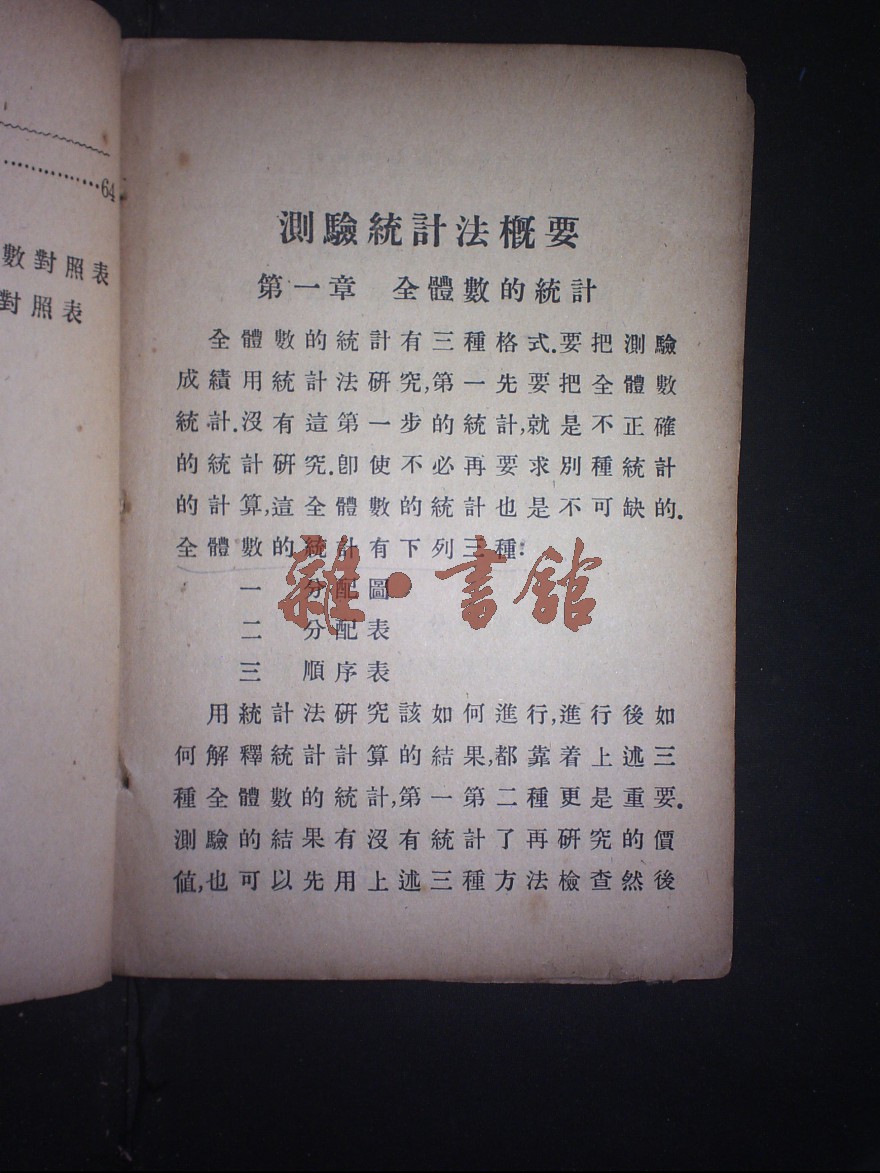 64
數對照表
對照表
測驗統計法概要
第一章　全體數的統計
全體數的統計有三種格式.要把測驗
成績用統計法研究,第一先要把全體數
統計.沒有這第一步的統計,就是不正確
的統計研究.卽使不必再要求別種統計
的計算,這全體數的統計也是不可缺的.
全體數的統計有下列三種:
一　分配圖
二　分配表
三　順序表
雜·書館
用統計法研究該如何進行,進行後如
何解釋統計計算的結果,都靠着上述三
種全體數的統計,第一第二種更是重要.
測驗的結果有沒有統計了再研究的價
值,也可以先用上述三種方法檢查然後